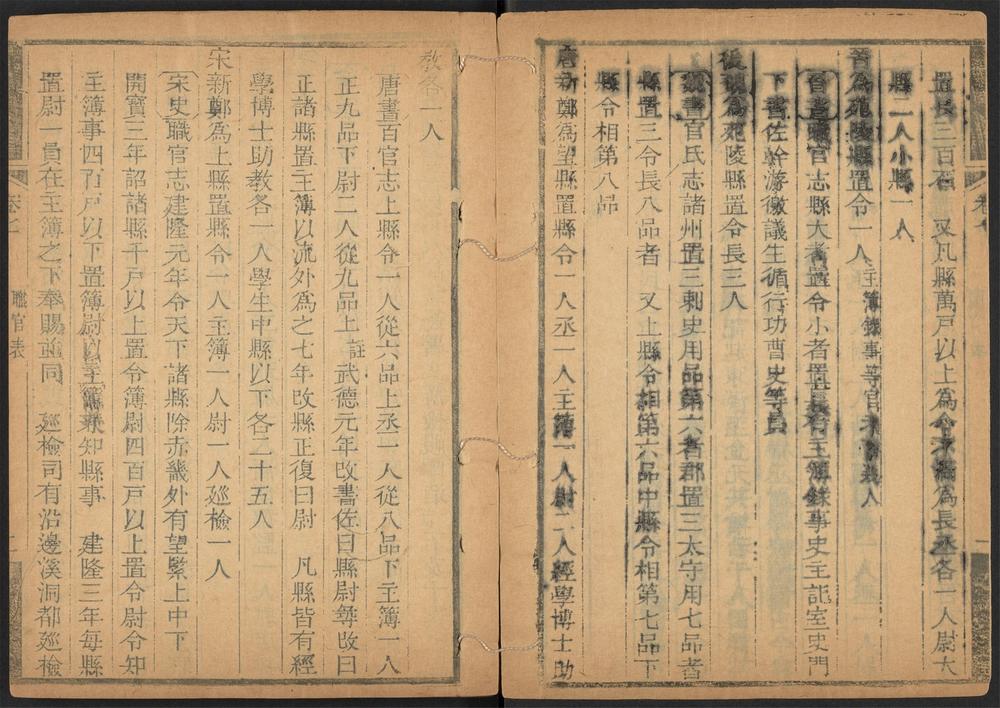 置長三百石　又凡縣萬戶以上爲令不滿爲長丞各一人尉大
縣二人小縣一人
晉爲苑陵縣置令一人主簿錄事等官未詳幾人
晉書職官志縣大者置令小者置長有主簿錄事史主記室史門
下書佐幹游徼議生循行功曹史等員
後魏爲苑陵縣置令長三人
魏書官氏志諸州置三刺史用品第六者郡置三太守用七品者
縣置三令長八品者　又上縣令相第六品中縣令相第七品下
縣令相第八品
唐新鄭爲望縣置縣令一人丞一人主簿一人尉二人經學博士助
教各一人
唐書百官志上縣令一人從六品上丞一人從八品下主簿一人
正九品下尉二人從九品上註武德元年改書佐曰縣尉尋改曰
正諸縣置主簿以流外爲之七年改縣正復曰尉　凡縣皆有經
學博士助教各一人學生中縣以下各二十五人
宋新鄭爲上縣置縣令一人主簿一人尉一人廵檢一人
宋史職官志建隆元年令天下諸縣除赤畿外有望緊上中下
開寶三年詔諸縣千戶以上置令簿尉四百戶以上置令尉令知
主簿事四百戶以下置簿尉以主簿兼知縣事　建隆三年每縣
置尉一員在主簿之下奉賜並同　廵檢司有沿邊溪洞都廵檢
職官表